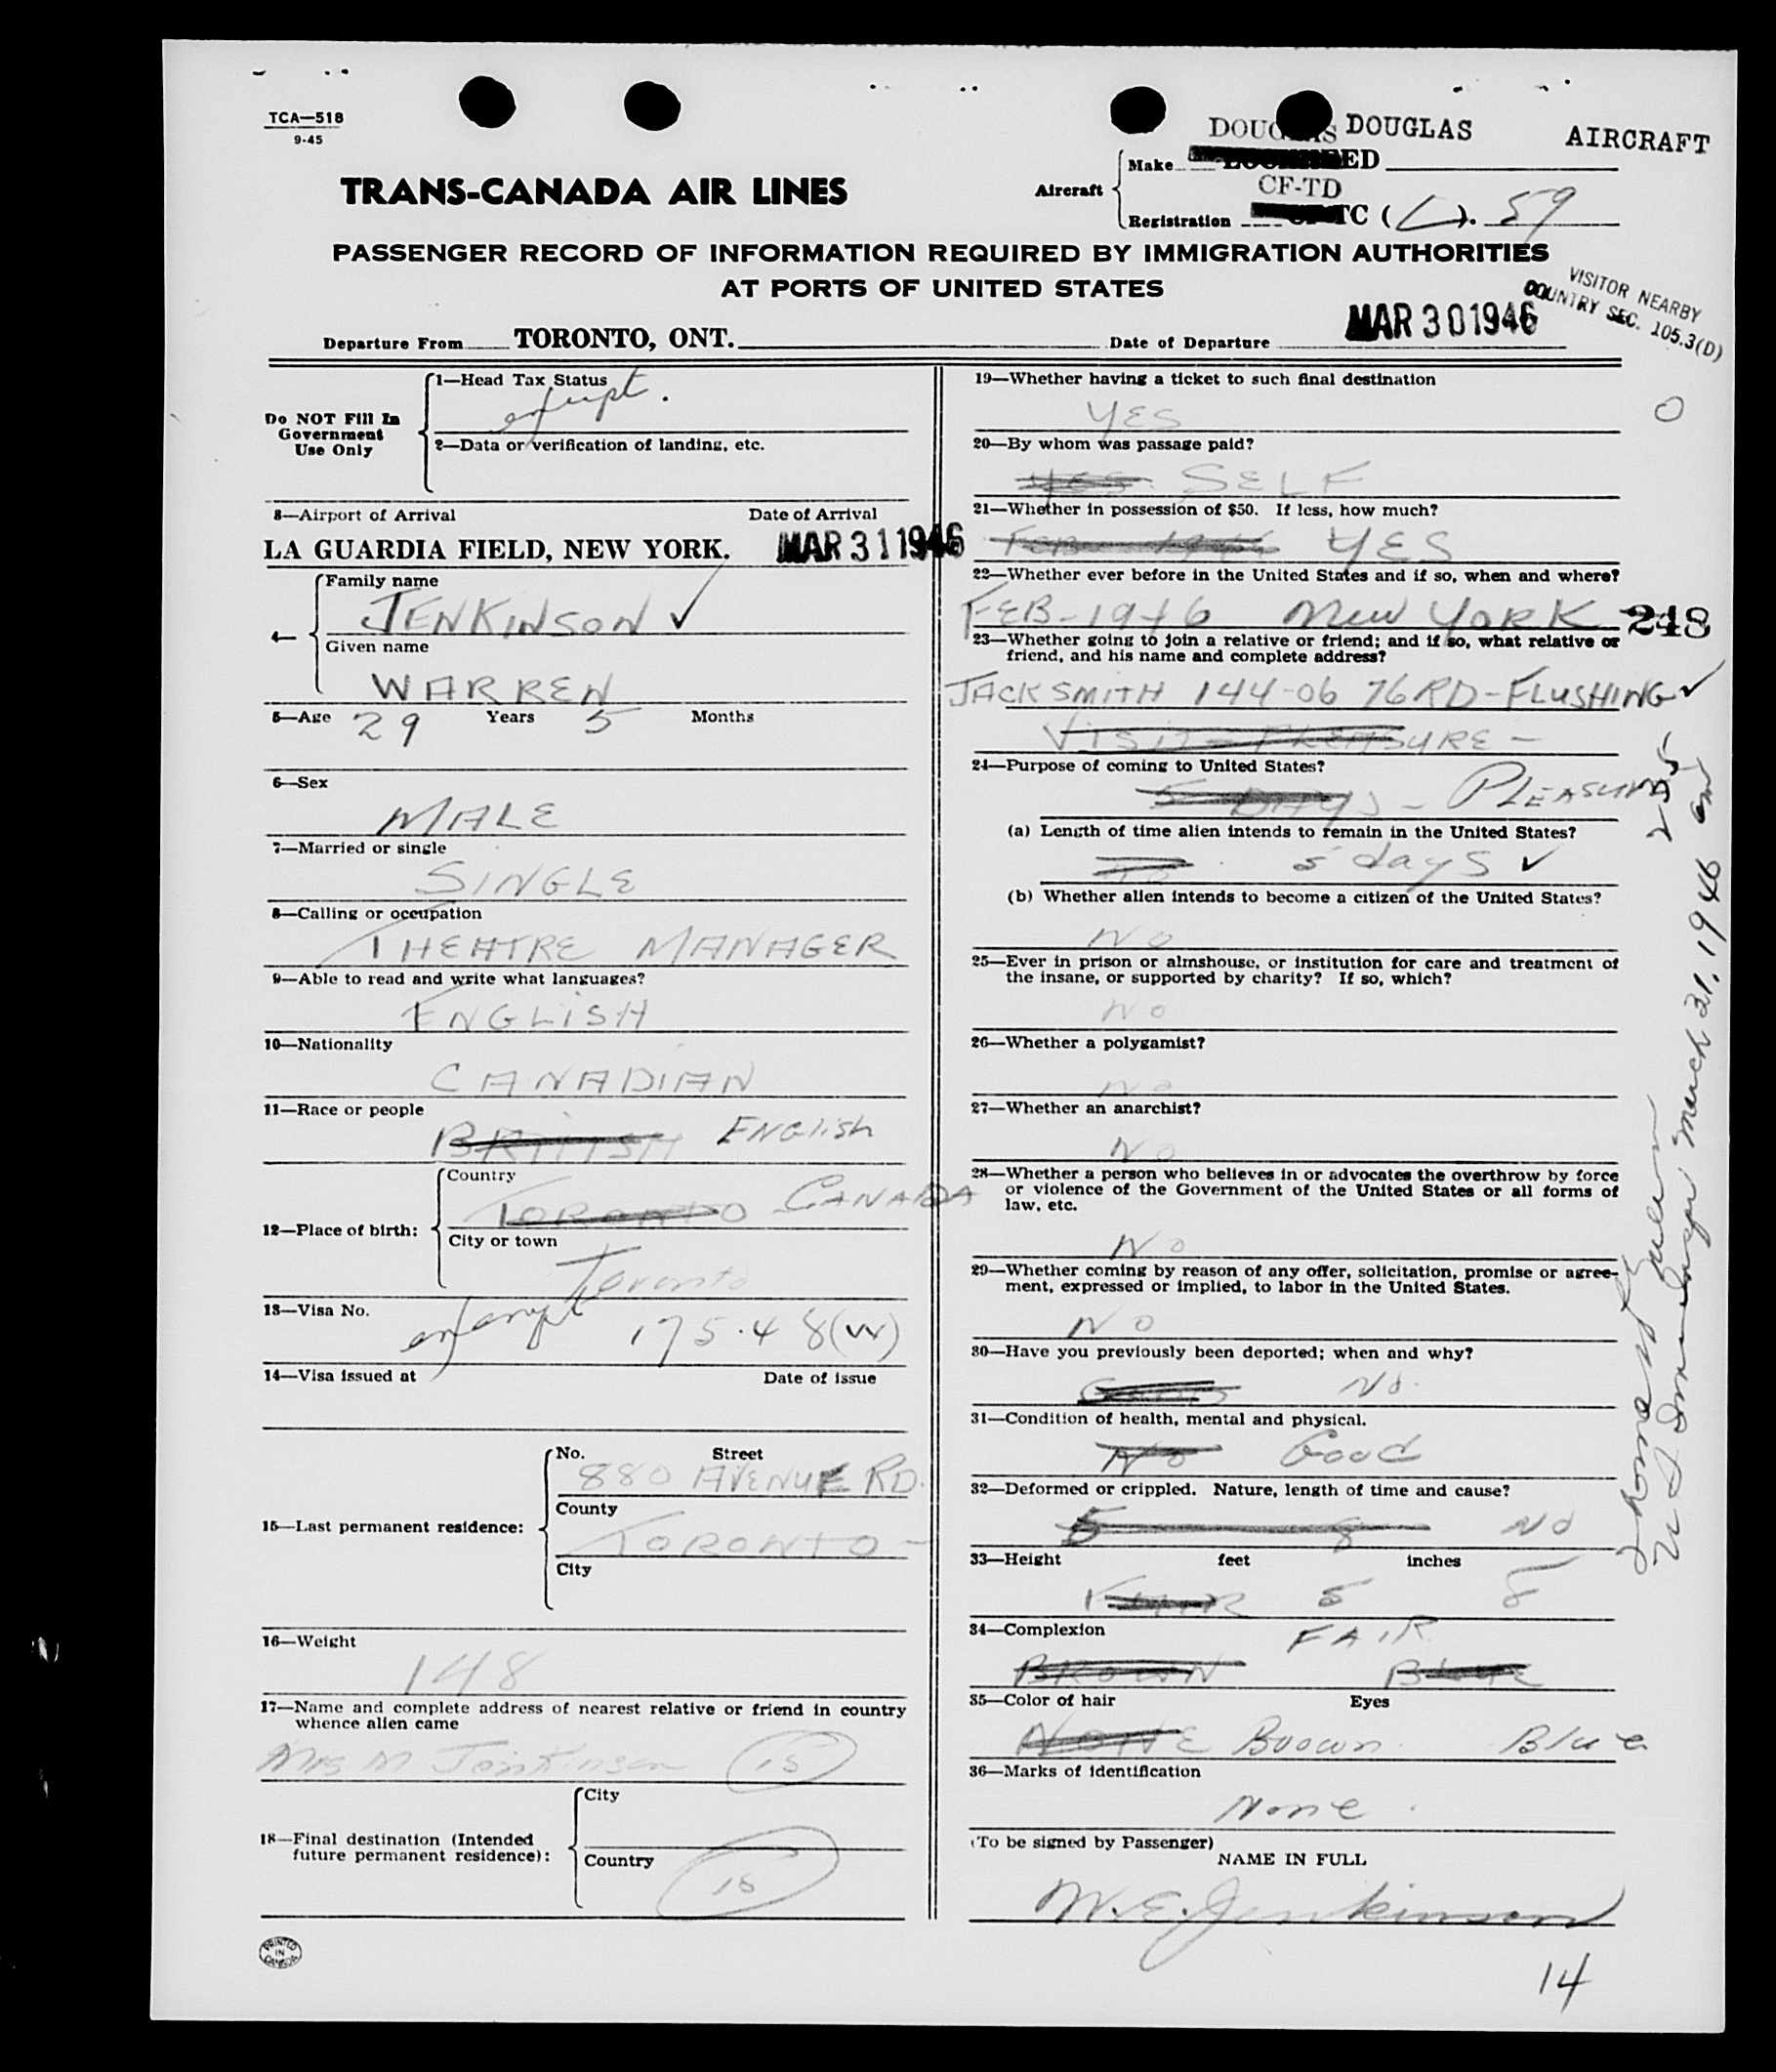 TCA—518
9-45
DOUGLAS DOUGLAS AIRCRAFT
TRANS-CANADA AIR LINES
Aircraft
Make
CF-TD
Registration TC (L). 59
PASSENGER RECORD OF INFORMATION REQUIRED BY IMMIGRATION AUTHORITIES
AT PORTS OF UNITED STATES
VISITOR NEARBY
COUNTRY SEC. 105.3(D)
Departure From TORONTO, ONT. Date of Departure MAR 30 1946
Do NOT Fill In
Government
Use Only
1—Head Tax Status
exempt.
2—Data or verification of landing, etc.
3—Airport of Arrival Date of Arrival
LA GUARDIA FIELD, NEW YORK. MAR 31 1946
4— Family name
JENKINSON ✓
Given name
WARREN
5—Age 29 Years 5 Months
6—Sex
MALE
7—Married or single
SINGLE
8—Calling or occupation
THEATRE MANAGER
9—Able to read and write what languages?
ENGLISH
10—Nationality
CANADIAN
11—Race or people
BRITISH ENGLISH
12—Place of birth:
Country
TORONTO CANADA
City or town
Toronto
13—Visa No.
exempt 175.48(W)
14—Visa issued at Date of issue
15—Last permanent residence:
No. Street
880 AVENUE RD.
County
TORONTO –
City
16—Weight
148
17—Name and complete address of nearest relative or friend in country
whence alien came
Mrs M Jenkinson (15)
18—Final destination (Intended
future permanent residence):
City
Country
15
PRINTED
IN
CANADA
19—Whether having a ticket to such final destination
YES
0
20—By whom was passage paid?
YES SELF
21—Whether in possession of $50. If less, how much?
FEB 1946 YES
22—Whether ever before in the United States and if so, when and where?
FEB-1946 NEW YORK 248
23—Whether going to join a relative or friend; and if so, what relative or
friend, and his name and complete address?
JACK SMITH 144-06 76 RD-FLUSHING ✓
VISIT – PLEASURE –
24—Purpose of coming to United States?
5 DAYS – PLEASURE
(a) Length of time alien intends to remain in the United States?
5 days ✓
(b) Whether alien intends to become a citizen of the United States?
NO
25—Ever in prison or almshouse, or institution for care and treatment of
the insane, or supported by charity? If so, which?
NO
26—Whether a polygamist?
NO
27—Whether an anarchist?
NO
28—Whether a person who believes in or advocates the overthrow by force
or violence of the Government of the United States or all forms of
law, etc.
NO
29—Whether coming by reason of any offer, solicitation, promise or agree-
ment, expressed or implied, to labor in the United States.
NO
30—Have you previously been deported; when and why?
NO.
31—Condition of health, mental and physical.
NO Good
32—Deformed or crippled. Nature, length of time and cause?
5 8 NO
33—Height feet inches
FAIR 5 8
34—Complexion FAIR
BROWN BLUE
35—Color of hair Eyes
NONE Brown Blue
36—Marks of identification
None.
(To be signed by Passenger)
NAME IN FULL
W.E. Jenkinson
14
March 31, 1946